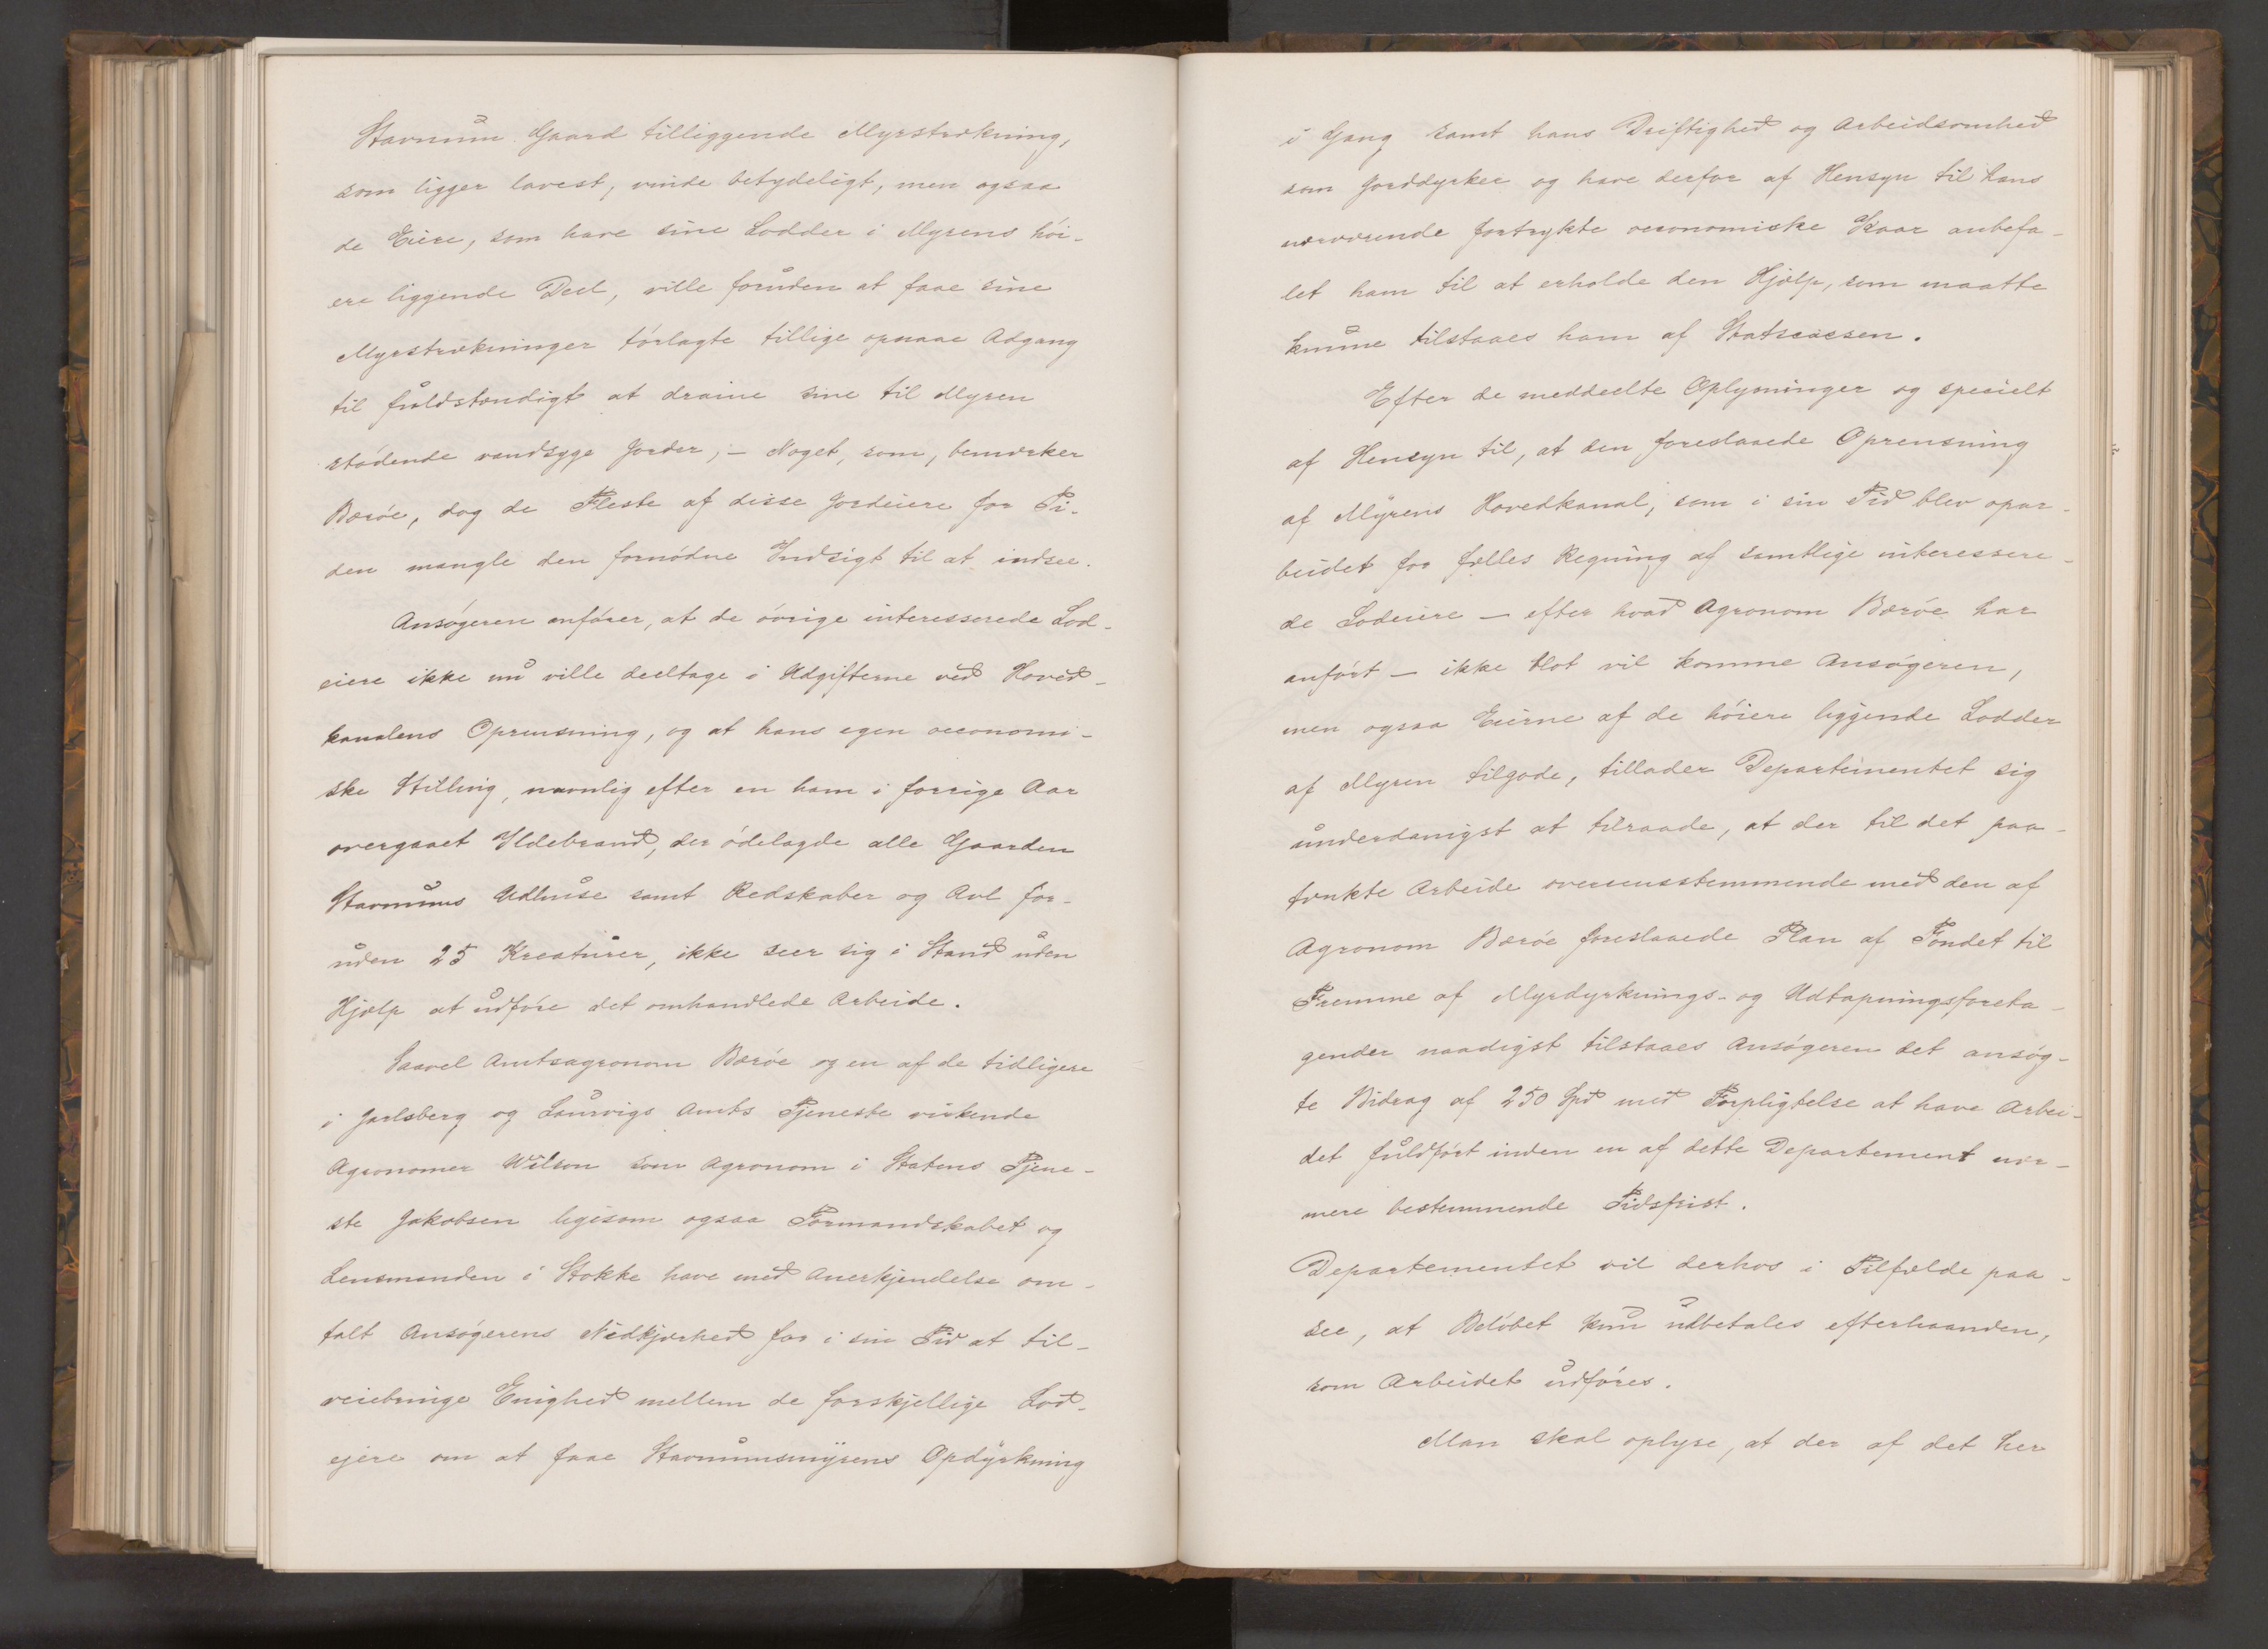 Stavnum Gaard tilliggende Myrstrækning,
som ligger lavest, vinde betydeligt, men ogsaa
de Eiere, som have sine Lodder i Myrens høi-
ere liggende Deel, ville foruden at faae sine
Myrstrækninger tørlagte tillige opnaae Adgang
til fuldstændigt at draine sine til Myren
stødende vandsyge Jorder, – Noget, som, bemærker
Børöe, dog de Fleste af disse Jordeiere for Ti-
den mangle den fornødne Indsigt til at indsee.
Ansøgeren anfører, at de øvrige interesserede Lod-
eiere ikke nu ville deeltage i Udgifterne ved Hoved-
kanalens Oprensning, og at hans egen oeconomi-
ske Stilling, navnlig efter en ham i forrige Aar
overgaaet Ildebrand, der ødelagde alle Gaarden
Stavnums Udhuse samt Redskaber og Avl for-
uden 25 Kreaturer, ikke seer sig i Stand uden
Hjælp at udføre det omhandlede Arbeide.
Saavel Amtsagronom Børöe og en af de tidligere
i Jarlsberg og Laurvigs Amts Tjeneste virkende
Agronomer Wilson som Agronom i Statens Tjene-
ste Jakobsen ligesom ogsaa Formandskabet og
Lensmanden i Stokke have med Anerkjendelse om-
talt Ansøgerens Nidkjærhed for i sin Tid at til-
veiebringe Enighed mellem de forskjellige Lod-
ejere om at faae Stavnumsmyrens Opdyrkning
i Gang samt hans Driftighed og Arbeidsomhed
som Jorddyrker og have derfor af Hensyn til hans
nærværende fortrykte oeconomiske Kaar anbefa-
let ham til at erholde den Hjælp, som maatte
kunne tilstaaes ham af Statscassen.
Efter de meddeelte Oplysninger og specielt
af Hensyn til, at den foreslaaede Oprensning
af Myrens Hovedkanal, som i sin Tid blev opar-
beidet for fælles Regning af samtlige interessere-
de Lodeiere – efter hvad Agronom Børöe har
anført – ikke blot vil komme Ansøgeren,
men ogsaa Eierne af de høiere liggende Lodder
af Myren tilgode, tillader Departementet sig
underdanigst at tilraade, at der til det paa-
tænkte Arbeide overensstemmende med den af
Agronom Børöe foreslaaede Plan af Fondet til
Fremme af Myrdyrknings- og Udtapningsforeta-
gender naadigst tilstaaes Ansøgeren det ansøg-
te Bidrag af 250 Spd med Forpligtelse at have Arbei-
det fuldført inden en af dette Departement nær-
mere bestemmende Tidsfrist.
Departementet vil derhos i Tilfælde paa-
see, at Beløbet kun udbetales efterhaanden,
som Arbeidet udføres.
Man skal oplyse, at der af det her